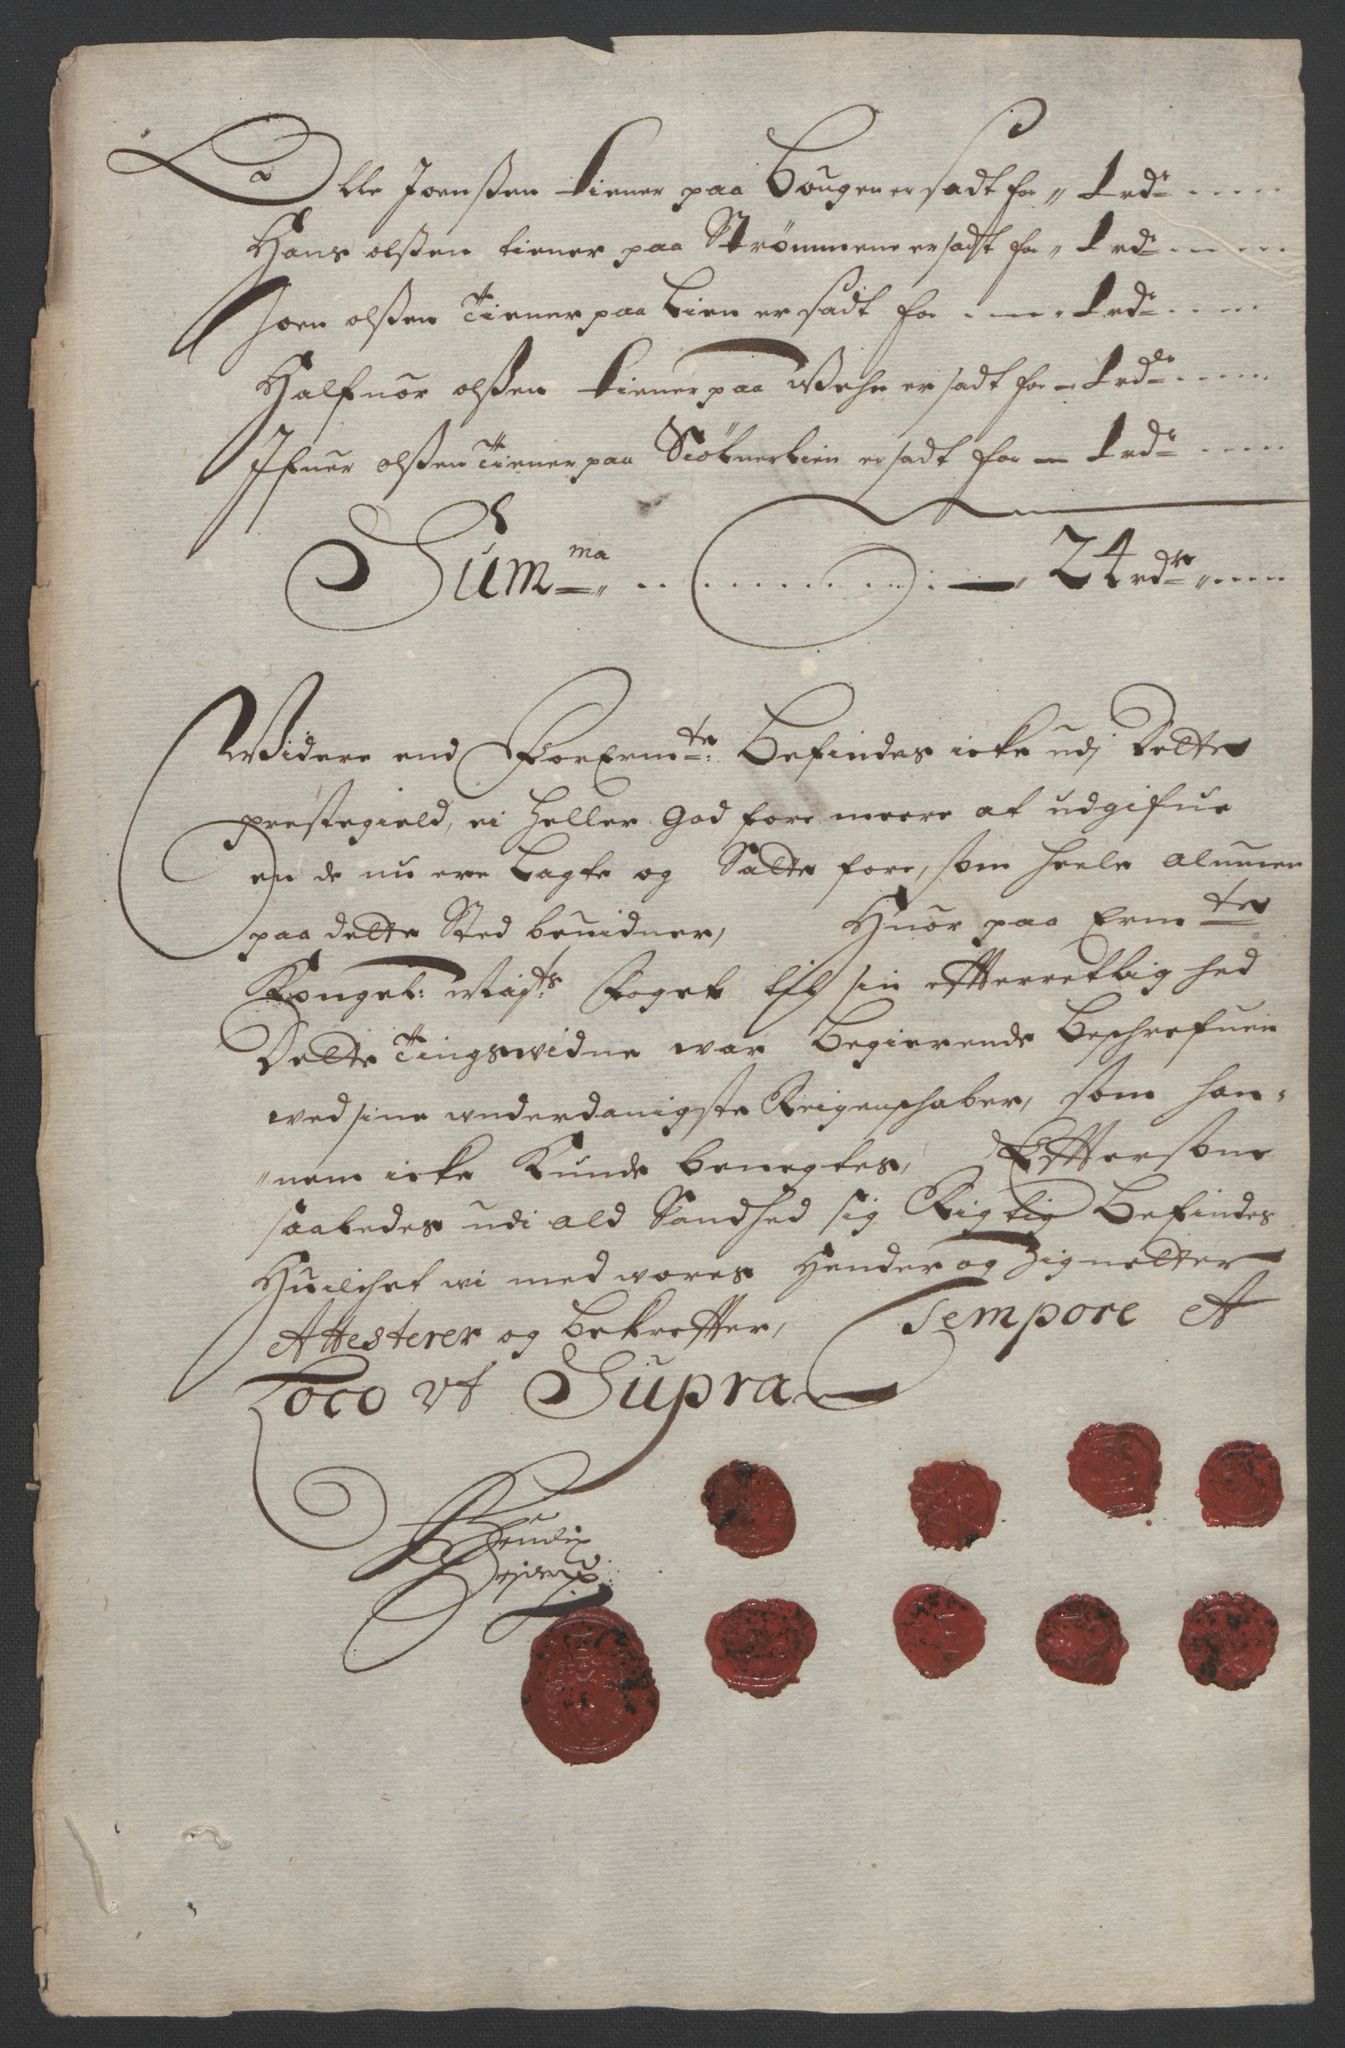 Olle Joenßen tiener paa Bougen er sadt for 1 rdr
Hans olßen tiener paa Strømmene er sadt for 1 rdr
Joen olßen Tiener paa Lien er sadt for 1 rdr
Halfuor olßen tiener paa Wehe er sadt for 1 rdr
Ifuer olßen Tiener paa er sadt for 1 rdr
Summa 24 rdr
Widere end ForErmte: Befindes icke udj Dette
prestegield, ei heller God fore meere at udgifue
en de nu ere Lagte og Satte fore, som heele almuen
paa dette Sted beuidner, Huor paa Ermte
Kongel: Maÿts Foget til sin effterretlighed
Dette Tingswidne war Begierende Beschrefuen
wed sine underdanigste Reigenschaber, som han-
nem icke Kunde benegtes, Effttersom
saaledes udi ald Sandhed sig Rigtig Befindes
Huilchet wi med wores Hender og Zignetter
Attesterer og bekreffter, Tempore et
Loco vt Supra